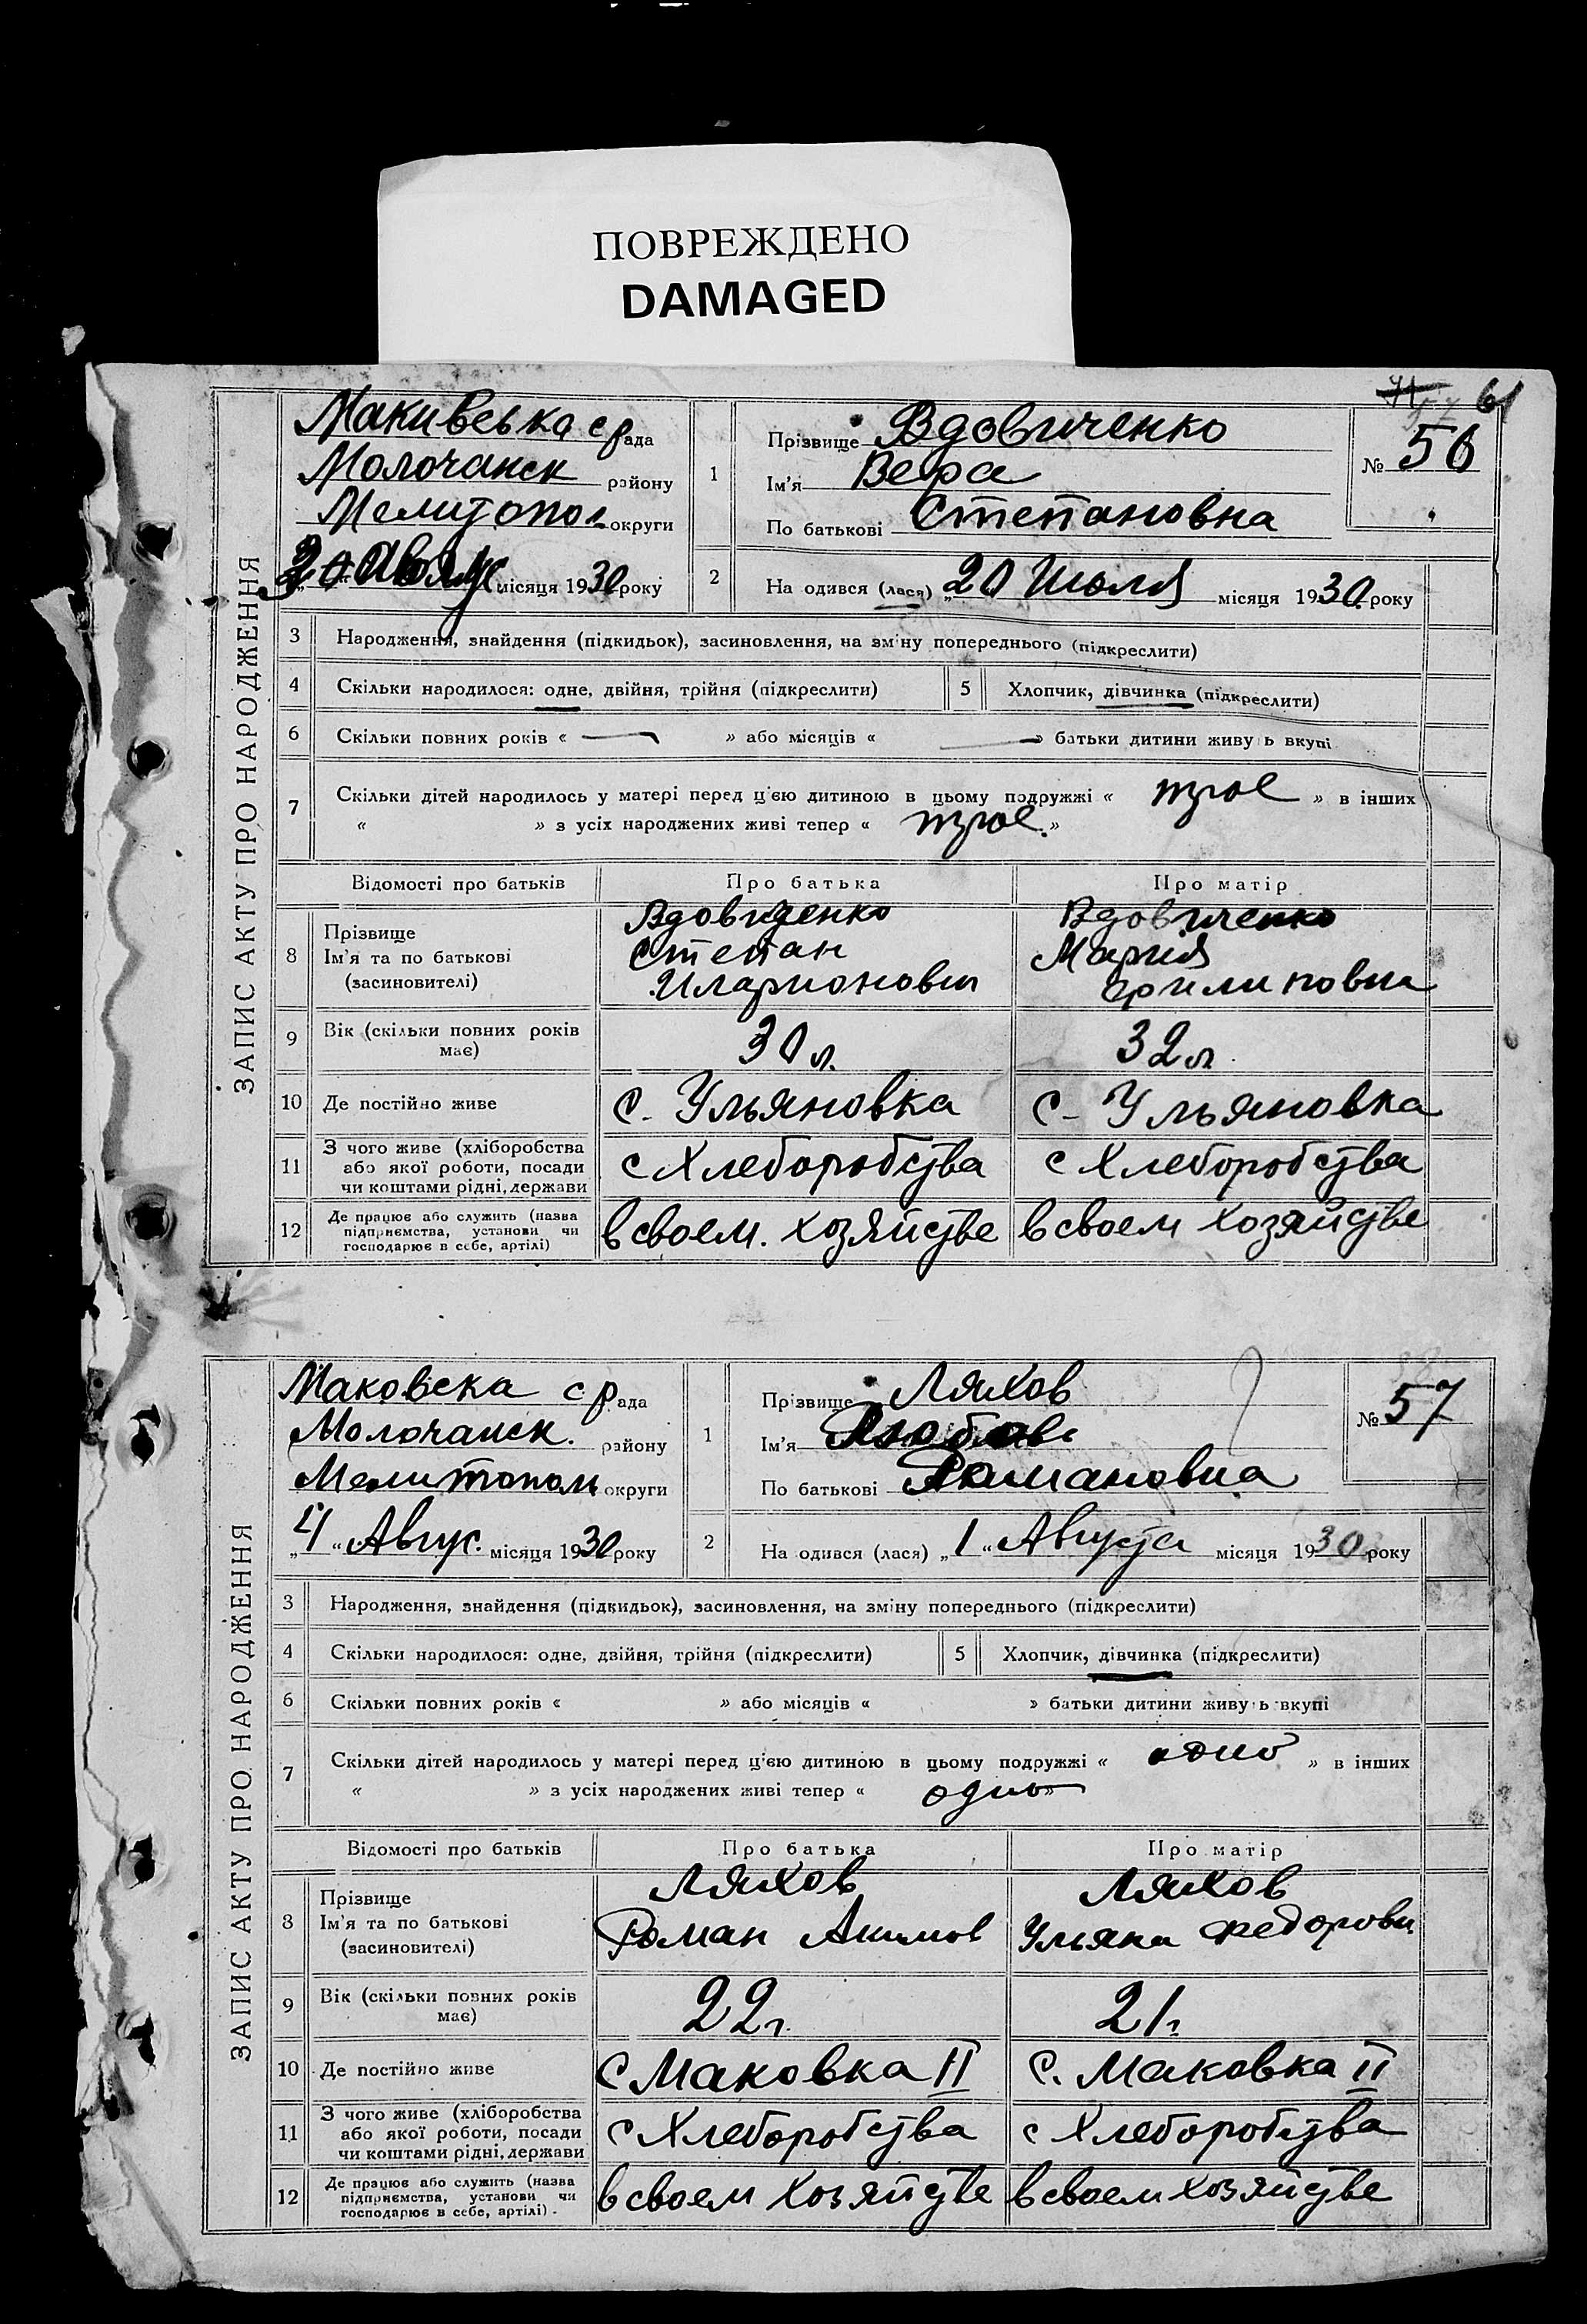 ПОВРЕЖДЕНО
DAMAGED
61
ЗАПИС АКТУ ПРО НАРОДЖЕННЯ
Макивська с рада
Молочанск району
Мелитопол округи
місяця 1930 року
1
Прізвище Вдовиченко
Ім'я Вера
По батькові Степановна
№ 56
2
На одився (лася) „20 Июля місяця 1930 року
3 Народження, знайдення (підкидьок), засиновлення, на зміну попереднього (підкреслити)
4 Скільки народилося: одне, двійня, трійня (підкреслити) 5 Хлопчик, дівчинка (підкреслити)
6 Скільки повних років « — » або місяців « — » батьки дитини живуь вкупі
7 Скільки дітей народилось у матері перед ц'єю дитиною в цьому подружжі « трое » в інших
« » з усіх народжених живі тепер « трое »
Відомості про батьків Про батька Про матір
8 Прізвище Ім'я та по батькові (засновителі)
Вдовиченко Степан Иларионович
Вдовиченко Мария Филиповна
9 Вік (скільки повних років має) 30 л. 32 л.
10 Де постійно живе с. Ульяновка с- Ульяновка
11 З чого живе (хліборобства або якої роботи, посади чи коштами рідні, держави с Хлеборобства с Хлеборобства
12 Де працює або служить (назва підприємства, установи чи господарює в себе, артілі) в своем. хозяйстве в своем хозяйстве
ЗАПИС АКТУ ПРО НАРОДЖЕННЯ
Маковска с рада
Молочанск. району
Мелитополь округи
„4 “ Авгус. місяця 1930 року
1
Прізвище Ляхов
Ім'я Любовь
По батькові Романовна
№ 57
2
На одився (лася) „1 “ Августа місяця 1930 року
3 Народження, знайдення (підкидьок), засиновлення, на зміну попереднього (підкреслити)
4 Скільки народилося: одне, двійня, трійня (підкреслити) 5 Хлопчик, дівчинка (підкреслити)
6 Скільки повних років « » або місяців « » батьки дитини живуь вкупі
7 Скільки дітей народилось у матері перед ц'єю дитиною в цьому подружжі « одно » в інших
« » з усіх народжених живі тепер « одно»
Відомості про батьків Про батька Про матір
8 Прізвище Ім'я та по батькові (засиновителі)
Ляхов Роман Акимов
Ляхов Ульяна Федоровн
9 Вік (скільки повних років має) 22 г. 21 г.
10 Де постійно живе с Маковка II с. Маковка II
11 З чого живе (хліборобства або якої роботи, посади чи коштами рідні, держави с Хлеборобства с Хлеборобства
12 Де працює або служить (назва підприємства, установи чи господарює в себе, артілі). в своем хозяйстве в своем хозяйстве